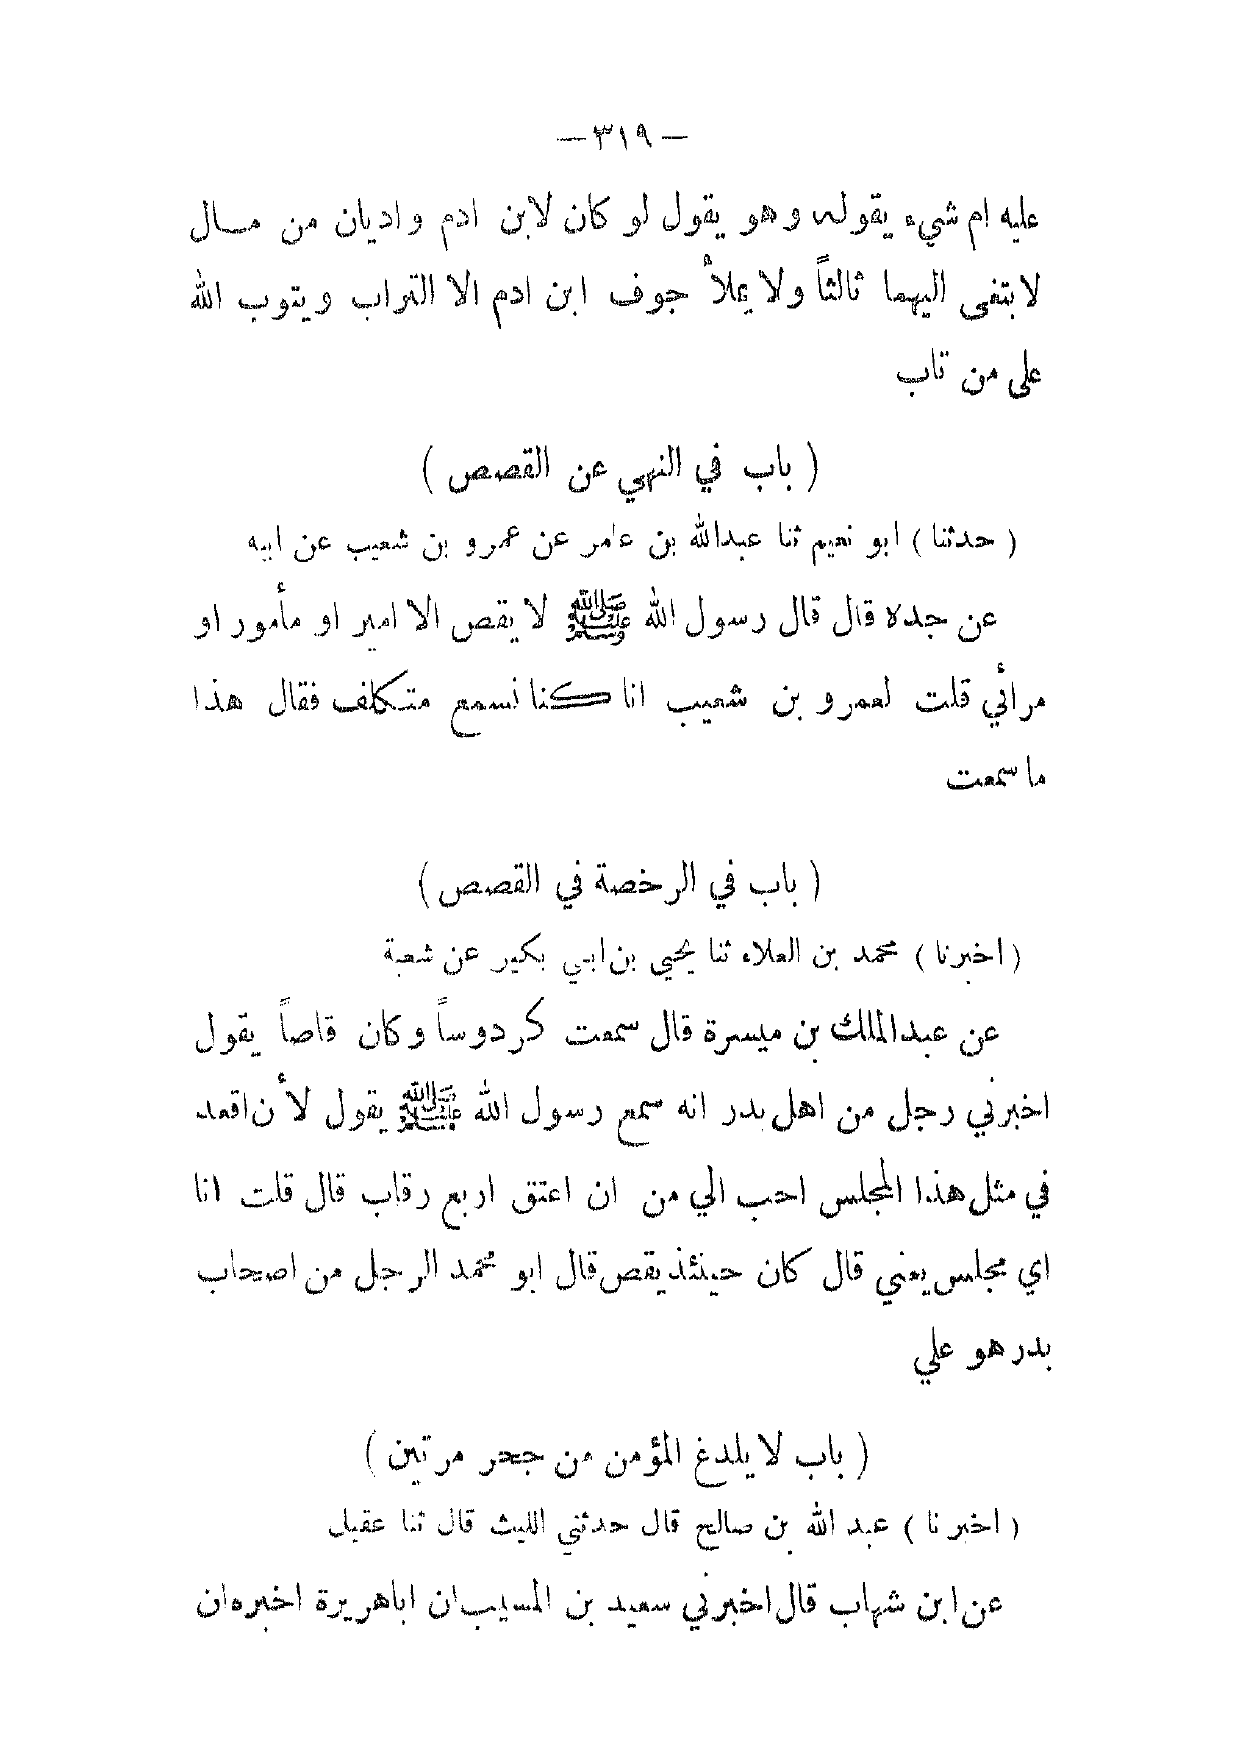 — ٣١٩ —
عليه ام شيء يقوله وهو يقول لو كان لابن ادم واديان من مال
لابتغى اليهما ثالثاً ولا يملأ جوف ابن ادم الا التراب ويتوب الله
على من تاب
( باب في النهي عن القصص )
( حدثنا ) ابو نعيم ثنا عبدالله بن عامر عن عمرو بن شعيب عن ابيه
عن جده قال قال رسول الله ﷺ لا يقص الا امير او مأمور او
مرائي قلت لعمرو بن شعيب انا كنا نسمع متكلف فقال هذا
ما سمعت
( باب في الرخصة في القصص )
( اخبرنا ) محمد بن العلاء ثنا يحيي بن ابي بكير عن شعبة
عن عبدالملك بن ميسرة قال سمعت كردوساً وكان قاصاً يقول
اخبرني رجل من اهل بدر انه سمع رسول الله ﷺ يقول لأن اقعد
في مثل هذا المجلس احب الي من ان اعتق اربع رقاب قال قلت انا
اي مجلس يعني قال كان حينئذ يقص قال ابو محمد الرجل من اصحاب
بدر هو علي
( باب لا يلدغ المؤمن من جحر مرتين )
( اخبرنا ) عبد الله بن صالح قال حدثني الليث قال ثنا عقيل
عن ابن شهاب قال اخبرني سعيد بن المسيب ان اباهريرة اخبره ان